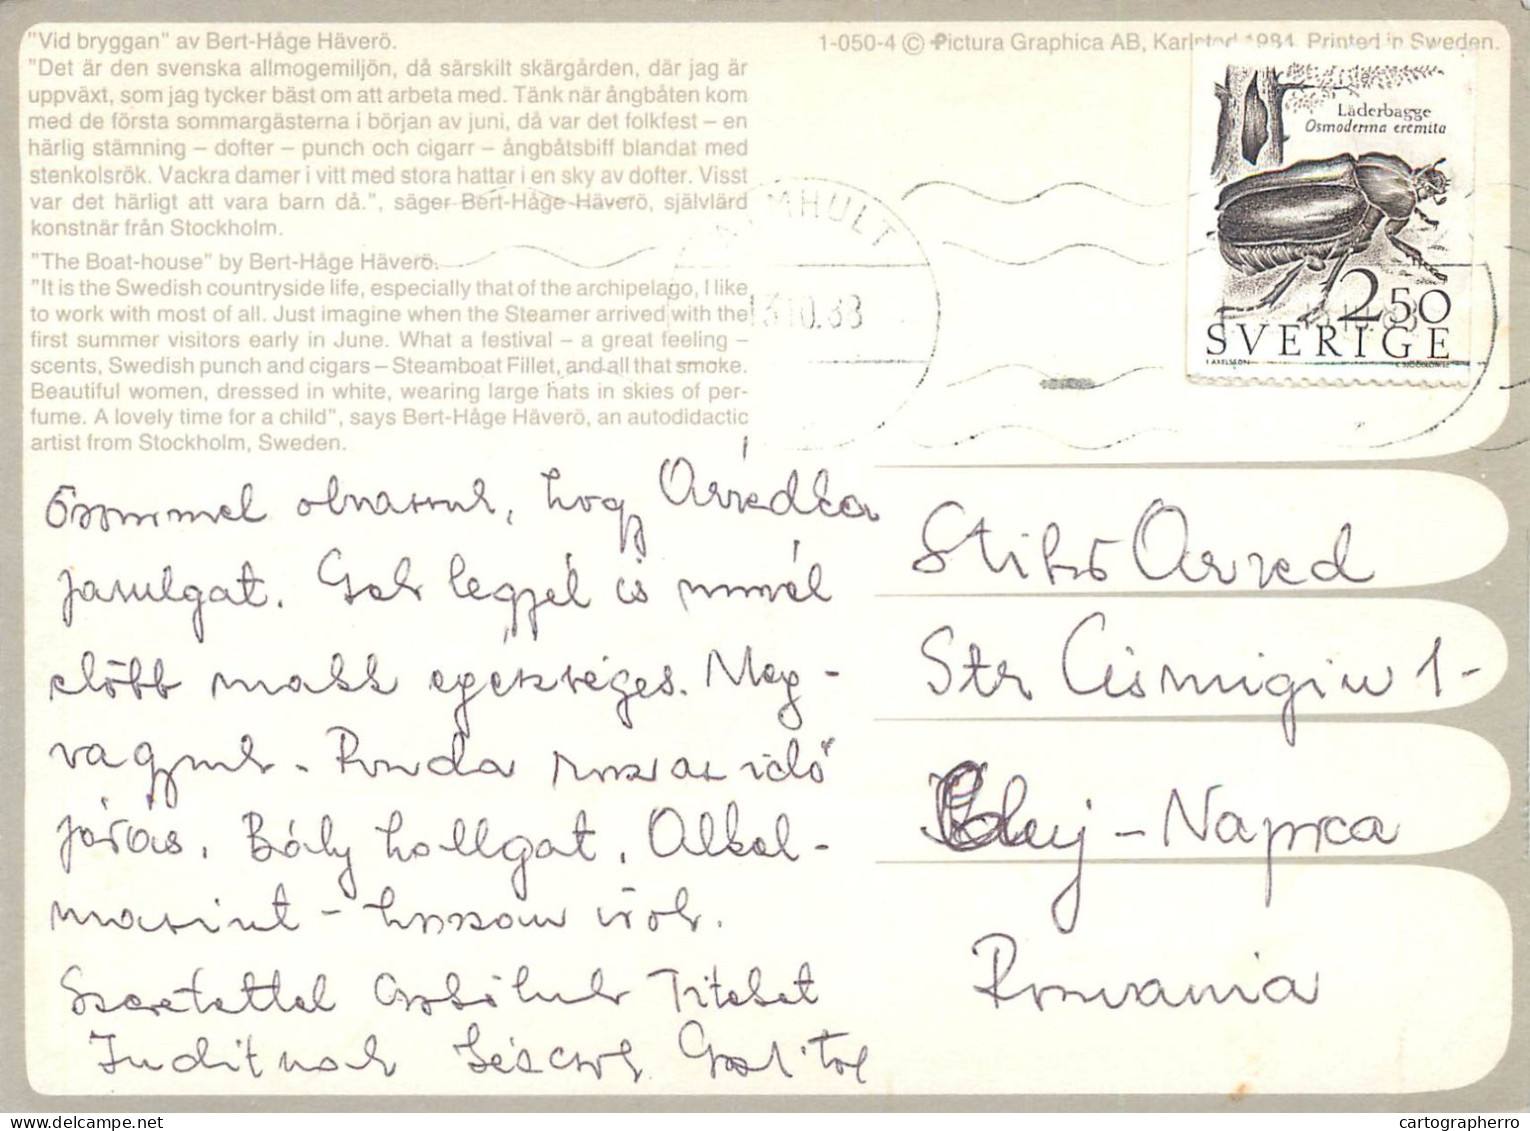 "Vid bryggan" av Bert-Håge Häverö.
"Det är den svenska allmogemiljön, då särskilt skärgården, där jag är
uppväxt, som jag tycker bäst om att arbeta med. Tänk när ångbåten kom
med de första sommargästerna i början av juni, då var det folkfest – en
härlig stämning – dofter – punch och cigarr – ångbåtsbiff blandat med
stenkolsrök. Vackra damer i vitt med stora hattar i en sky av dofter. Visst
var det härligt att vara barn då.", säger Bert-Håge Häverö, självlärd
konstnär från Stockholm.
"The Boat-house" by Bert-Håge Häverö.
"It is the Swedish countryside life, especially that of the archipelago, I like
to work with most of all. Just imagine when the Steamer arrived with the
first summer visitors early in June. What a festival – a great feeling –
scents, Swedish punch and cigars – Steamboat Fillet, and all that smoke.
Beautiful women, dressed in white, wearing large hats in skies of per-
fume. A lovely time for a child", says Bert-Håge Häverö, an autodidactic
artist from Stockholm, Sweden.
1-050-4 © Pictura Graphica AB, Karlstad 1984. Printed in Sweden.
Läderbagge
Osmoderma eremita
2.50
SVERIGE
ÄLMHULT
13.10.88
Örömmel olvassuk, hogy Árvédka
javulgat. Csak legyél is minél
előbb makk egészséges. Meg-
vagyunk. Ronda rossz az idő
járás. Bály hallgat. Alkal-
masint – hosszan írok.
Szeretettel csókolunk Titeket
Juditnak
Stikó Arved
Str Cismigiu 1-
Cluj – Napoca
Romania
cartographerro